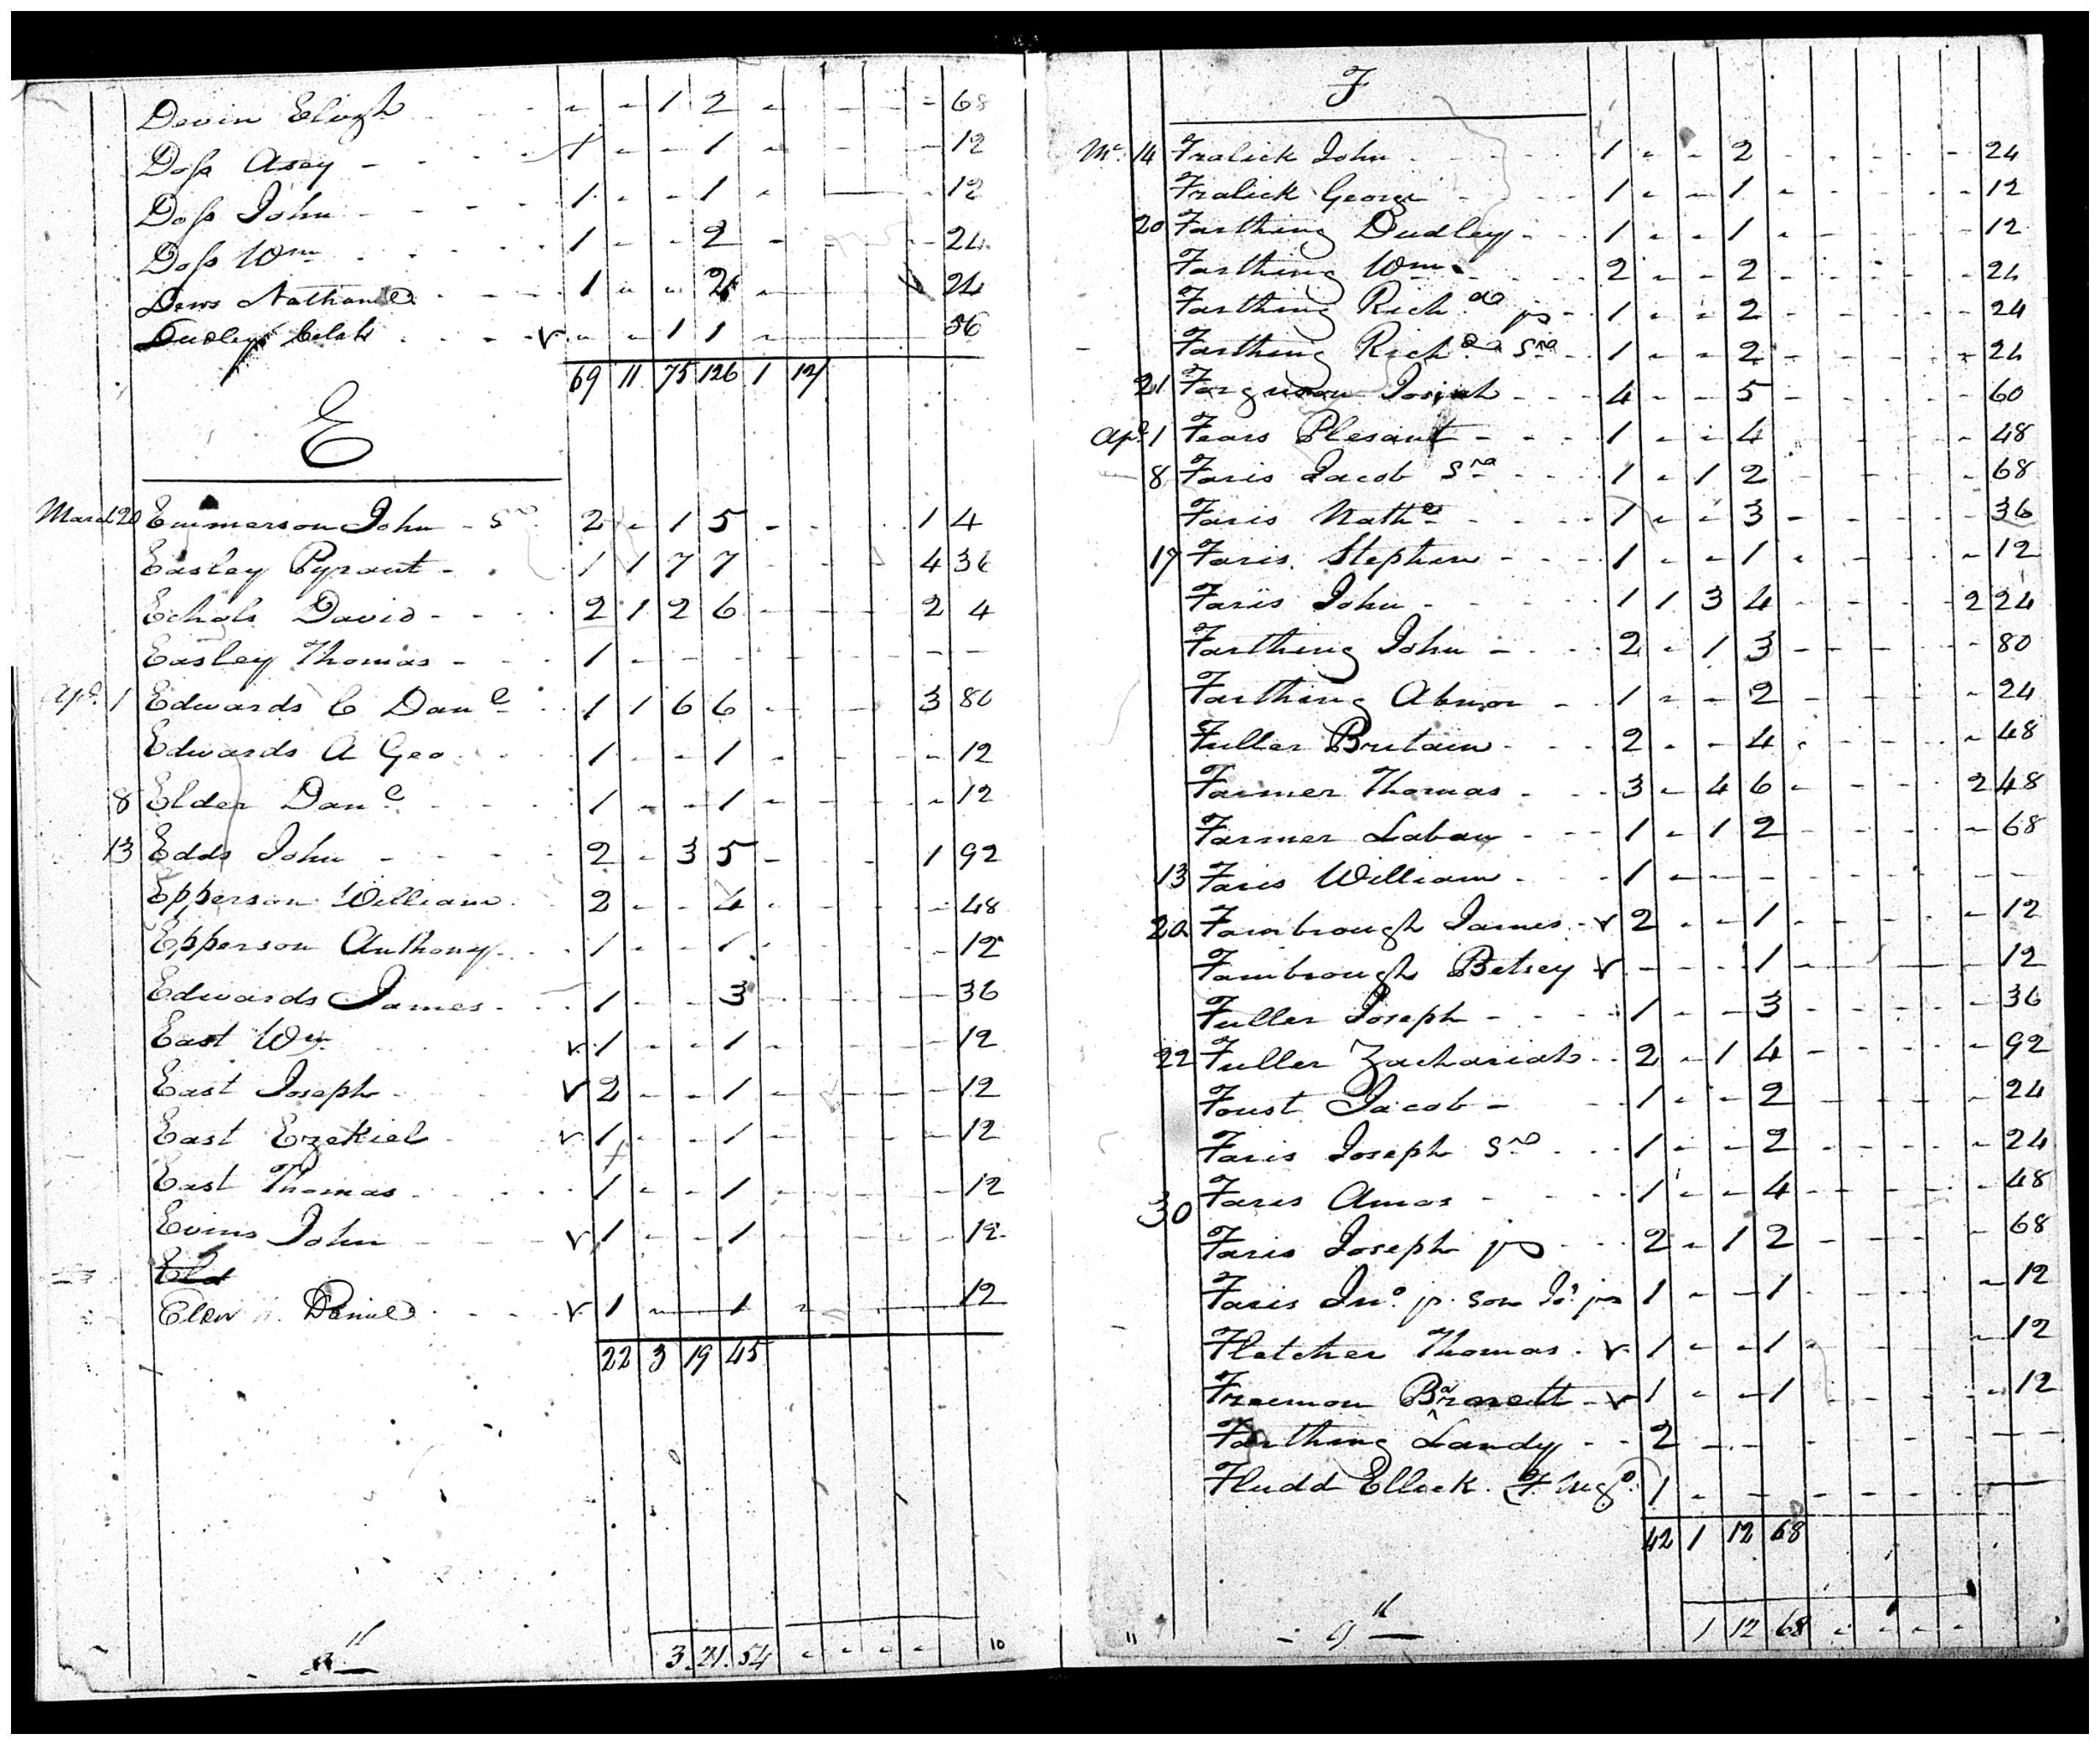 Devin Elizh - - 1 2 - - - - 68
Doss Asey - 1 - - 1 - - - - 12
Doss John - 1 - - 1 - - 12
Doss Wm 1 - - 2 - - - - 24
Dews Nathaniel 1 - - 2 - 24
Dudley v - - 1 1 - 56
69 11 75 126 1 12
E
March 20 Emmerson John - Sr 2 - 1 5 - - - 1 4
Easley Pyrant - 1 1 7 7 - - - 4 36
Echols David - - 2 1 2 6 - - - 2 4
Easley Thomas - 1 - - - - - - - -
Apl. 1 Edwards C Danl 1 1 6 6 - - - 3 80
Edwards A Geo 1 - - 1 - - - - 12
8 Elder Danl 1 - - 1 - - - - 12
13 Edds John - 2 - 3 5 - - - 1 92
Epperson William 2 - - 4 - - - - 48
Epperson Anthony 1 - - 1 - - - - 12
Edwards James - 1 - - 3 - - - - 36
East Wm v 1 - - 1 - - - - 12
East Joseph v 2 - - 1 - - - - 12
East Ezekiel v 1 - - 1 - - - - 12
East Thomas 1 - - 1 - - - - 12
Evins John v 1 - - 1 - - - - 12
Eld
Daniel v 1 - 1 - - 12
22 3 19 45
3. 21. 54 - - - - 10
F
Mc. 14 Fralick John 1 - - 2 - - - - 24
Fralick George 1 - - 1 - - - - 12
20 Farthing Dudley - 1 - - 1 - - - - 12
Farthing Wm. 2 - - 2 - - - - 24
Farthing Richd jr - 1 - - 2 - - - - 24
Farthing Richd Snr 1 - - 2 - - - - 24
21 Ferguson Josiah - - - 4 - - 5 - - - - 60
Apl. 1 Fears Plesant - - - 1 - - 4 - - - - 48
8 Faris Jacob Snr 1 - 1 2 - - - - 68
Faris Nathl 1 - - 3 - - - - 36
17 Faris Stephen - - - 1 - - 1 - - - - 12
Faris John - 1 1 3 4 - - - 2 24
Farthing John - 2 - 1 3 - - - - 80
Farthing Abner - 1 - - 2 - - - - 24
Fuller Britain - - - 2 - - 4 - - - - 48
Farmer Thomas - - - 3 - 4 6 - - - 2 48
Farmer Laban - - - 1 - 1 2 - - - - 68
13 Faris William - - - 1 - - - - - - - -
20 Fambrough James v 2 - - 1 - - - - 12
Fambrough Betsey v - - - 1 - - - - 12
Fuller Joseph - - - 1 - - 3 - - - - 36
22 Fuller Zachariah - - 2 - 1 4 - - - - 92
Foust Jacob - 1 - - 2 - - - - 24
Faris Joseph Snr 1 - - 2 - - - - 24
30 Faris Amos - 1 - - 4 - - - - 48
Faris Joseph jr - - - 2 - 1 2 - - - - 68
Faris Jno. jr. son Jos. jr 1 - - 1 - - - - 12
Fletcher Thomas. v 1 - - 1 - - - - 12
Freemon Barnett - v 1 - - 1 - - - - 12
Farthing Landy - - 2 - - - - - - - -
Fludd Elleck. F Nego. 1 - - - - - - -
42 1 12 68
11 1 12 68 - - - -